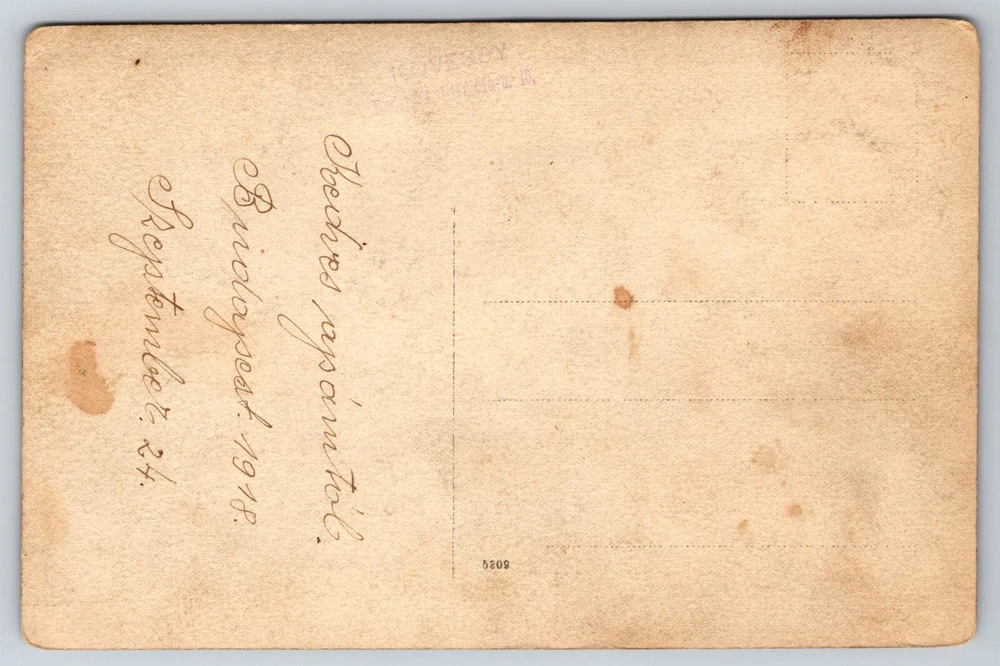 Kedves apámtól.
Budapest. 1918.
Szeptember. 24.
5209